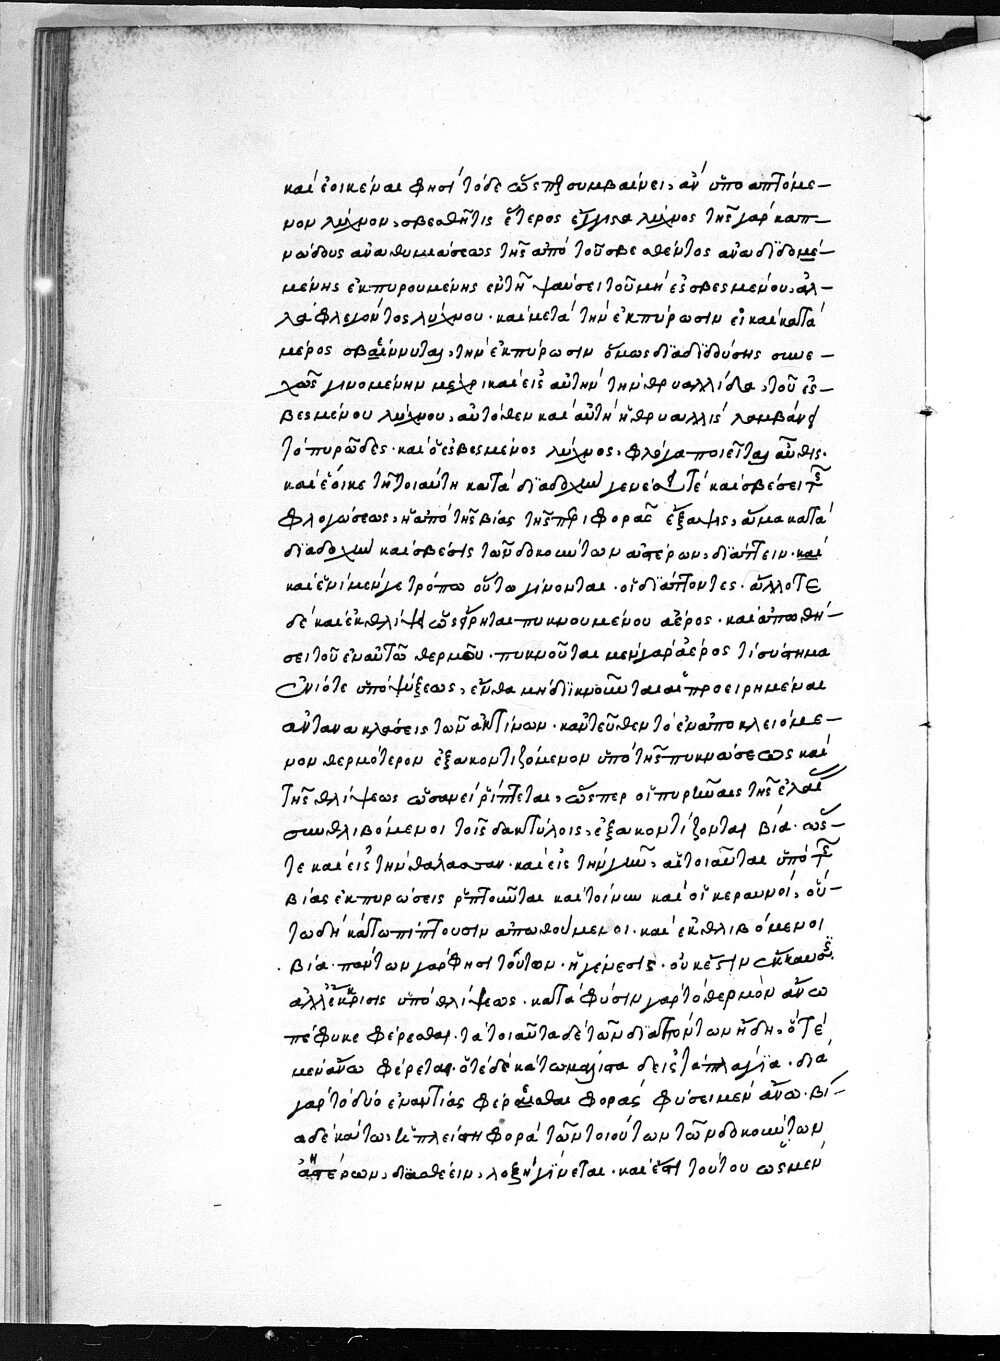 καὶ ἐοικέναι φησὶ τόδε ὥσπερ συμβαίνει, ἂν ὑπὸ ἁπτόμε-
νον λύχνον, σβεσθῇ τις ἕτερος ἔγγιστα λύχνος τῆς γὰρ καπ-
νώδους ἀναθυμιάσεως τῆς ἀπὸ τοῦ σβεσθέντος ἀναδιδομέ-
μένης ἐκπυρουμένης ἐν τῇ ψαύσει τοῦ μὴ ἐσβεσμένου, ἀλ-
λὰ φλεγόντος λύχνου· καὶ μετὰ τὴν ἐκπύρωσιν εἰ καὶ κατὰ
μέρος σβέννυται, τὴν ἐκπύρωσιν ὅμως διαδιδύσης συνε-
χῶς γινομένην μέχρι καὶ εἰς αὐτὴν τὴν θρυαλλίδα, τοῦ ἐσ-
βεσμένου λύχνου, αὐτόθεν καὶ αὐτὴ ἡ θρυαλλὶς λαμβάνει
τὸ πυρῶδες· καὶ ὁ ἐσβεσμένος λύχνος, φλόγα ποιεῖται αὖθις·
καὶ ἔοικε τῇ τοιαύτῃ κατὰ διαδοχὴν γενέσει τὲ καὶ σβέσει τῆς
φλογώσεως, ἡ ἀπὸ τῆς βίας τῆς περιφορᾶς ἔξαψις, ἅμα κατὰ
διαδοχὴν καὶ σβέσις τῶν δοκούντων ἀστέρων, διάττειν· καὶ
καὶ ἑνὶ μέν γε τρόπω οὕτω γίνονται· οἱ διάττοντες· ἄλλοτε
δὲ καὶ ἐκθλίψει ὡς εἴρηται πυκνουμένου ἀέρος· καὶ ἀπωθή-
σει τοῦ ἐν αὐτῶ θερμοῦ· πυκνοῦται μὲν γὰρ ἀέρος τὶ σύστημα
ἐνίοτε ὑπὸ ψύξεως, ἔνθα μὴ διικνοῦνται αἱ προειρημέναι
ἀντανακλάσεις τῶν ἀκτίνων· κἀντεῦθεν τὸ ἐναποκλειόμε-
νον θερμότερον ἐξακοντιζόμενον ὑπὸ τῆς πυκνώσεως καὶ
τῆς θλίψεως ὡσανεὶ ῥίπτεται, ὥσπερ οἱ πυρῆνες τῆς ἐλαίας
συνθλιβόμενοι τοῖς δακτύλοις, ἐξακοντίζονται βία· ὥσ-
τε καὶ εἰς τὴν θάλασσαν· καὶ εἰς τὴν γῆν, αἱ τοιαῦται ὑπὸ τῆς
βίας ἐκπυρώσεις ῥιπτοῦνται καὶ τοίνυν καὶ οἱ κεραυνοὶ, οὕ-
τω δὴ κάτω πίπτουσιν ἀπωθούμενοι· καὶ ἐκθλιβόμενοι
βία· πάντων γὰρ φησὶ τούτων· ἡ γένεσις· οὐκ ἔστιν ἔκκαυσις
ἀλλ' ἔκκρισις ὑπὸ θλίψεως· κατὰ φύσιν γὰρ τὸ θερμὸν ἄνω
πέφυκε φέρεσθαι· τὰ τοιαῦτα δὲ τῶν διαττόντων ἤδη, ὁτὲ
μὲν ἄνω φέρεται· ὁτὲ δὲ κάτω μάλιστα δ' εἰς τὰ πλάγια· διὰ
γὰρ τὸ δύο ἐναντίας φέρεσθαι φορὰς φύσει μὲν ἄνω· βί-
α δὲ κάτω, ἡ πλείστη φορὰ τῶν τοιούτων τῶν δοκούντων
ἀστέρων, διαθέειν, λοξὴ γίνεται· καὶ ἔστι τούτου ὡς μὲν